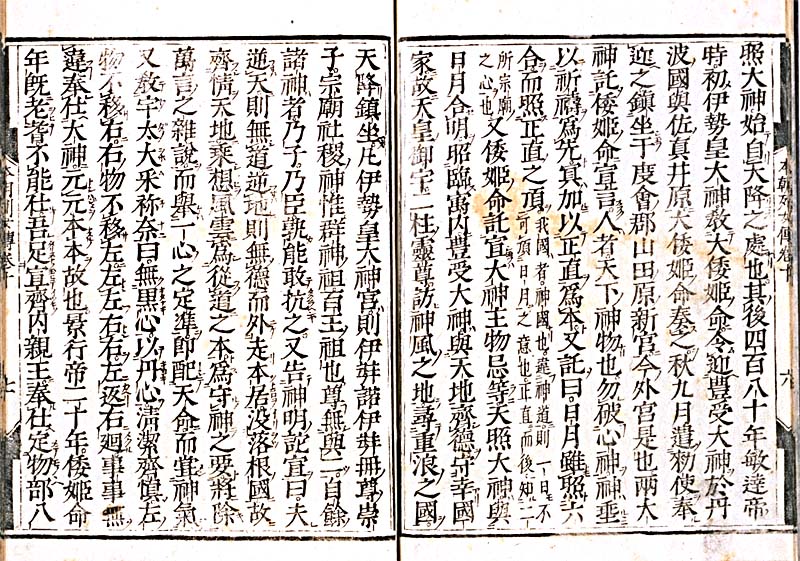 照大神始自天降之處也其後四百八十年敏達帝
時初伊勢皇大神教大倭姬命令迎豊受大神於丹
波國與佐真井原大倭姬命奏之秋九月遣勅使奉
迎之鎮坐于度會郡山田原新宮今外宮是也兩大
神託倭姬命宣言人者天下神物也勿破心神神垂
以祈禱爲先冥加以正直爲本又託曰日月雖照六
合而照正直之頂我國者神國也遵神道則一日不可頂日月之意也正直而後知二
所宗廟之心也又倭姬命託宣大神主物忌等天照大神與
日月合明照臨寓内豊受大神與天地齊德守幸國
家故天皇御宇二柱靈尊訪神風之地尋重浪之國
六
天降鎮坐凡伊勢皇大神宮則伊弉諾伊弉冊尊崇
子宗廟社稷神惟群神祖百王祖也尊無與二自餘
諸神者乃子乃臣孰能敢抗之又告神明託宣曰夫
逆天則無道逆地則無德而外走本居没落根國故
齊情天地乘想風雲爲從道之本爲守神之要將除
萬言之雜說而舉一心之定準即配天命而甞神氣
又教宇太大采祢奈曰無黒心以丹心清潔齊愼左
物不移右右物不移左左左右右左返右廻事事無
違奉仕大神元元本本故也景行帝二十年倭姬命
年旣老耆不能仕吾足宜齊内親王奉仕定物部八
七